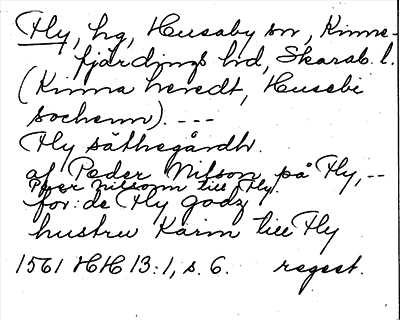 Fly, hg, Husaby sn, Kinne-
fjärdings hd, Skarab. l.
(Kinna heredt, Husebi
sochenn). ---
Fly säthegårdh.
af Peder Nilson på Fly, --
Peer Nilsonn till Fly.
for: de Fly godz
hustru Karin till Fly
1561 HH 13:1, s. 6. regest.